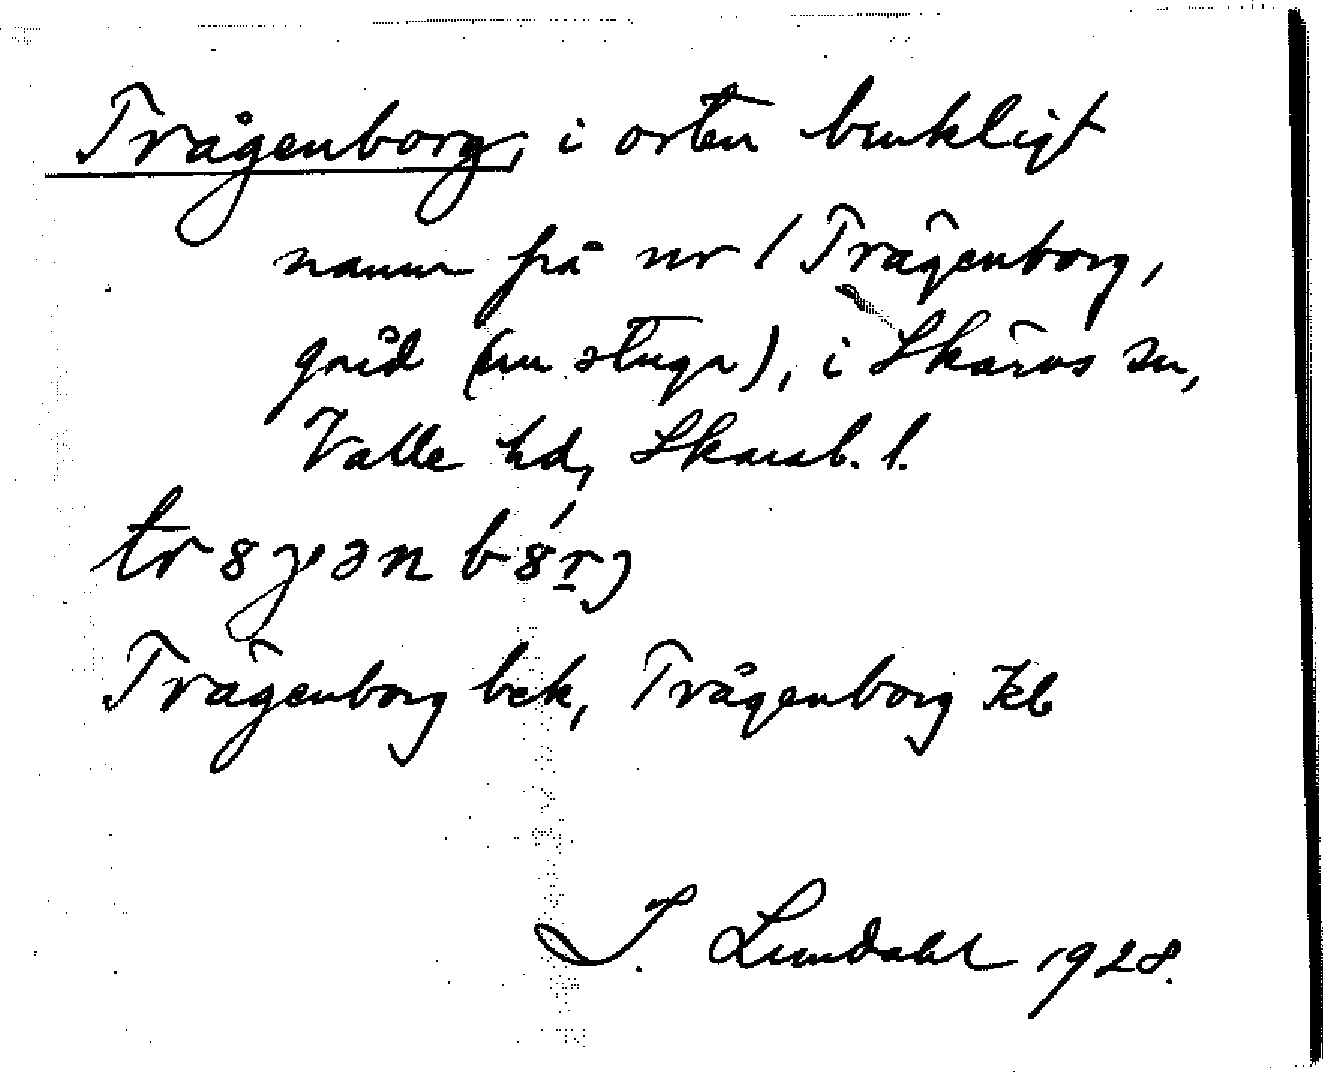 Trågenborg, i orten brukligt
namn på nr 1 Trågenborg,
gård (nu stuga), i Skärvs sn,
Valle hd, Skarab. l.
Trågenborg bek, Trågenborg Kb
I. Lundahl 1928.